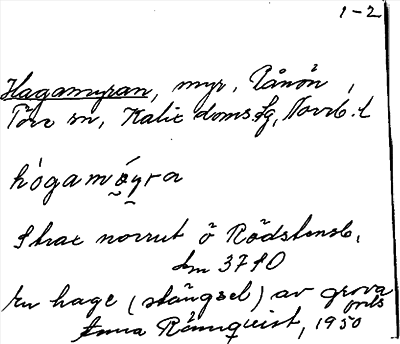 1-2
Hagamyran, myr, Rånön,
Töre sn, Kalix doms.lg, Norrb. l
hógamǿyra
Strax norrut ö Rödstensb,
km 3710
En hage (stängsel) av grova
Anna Rönnqvist, 1950